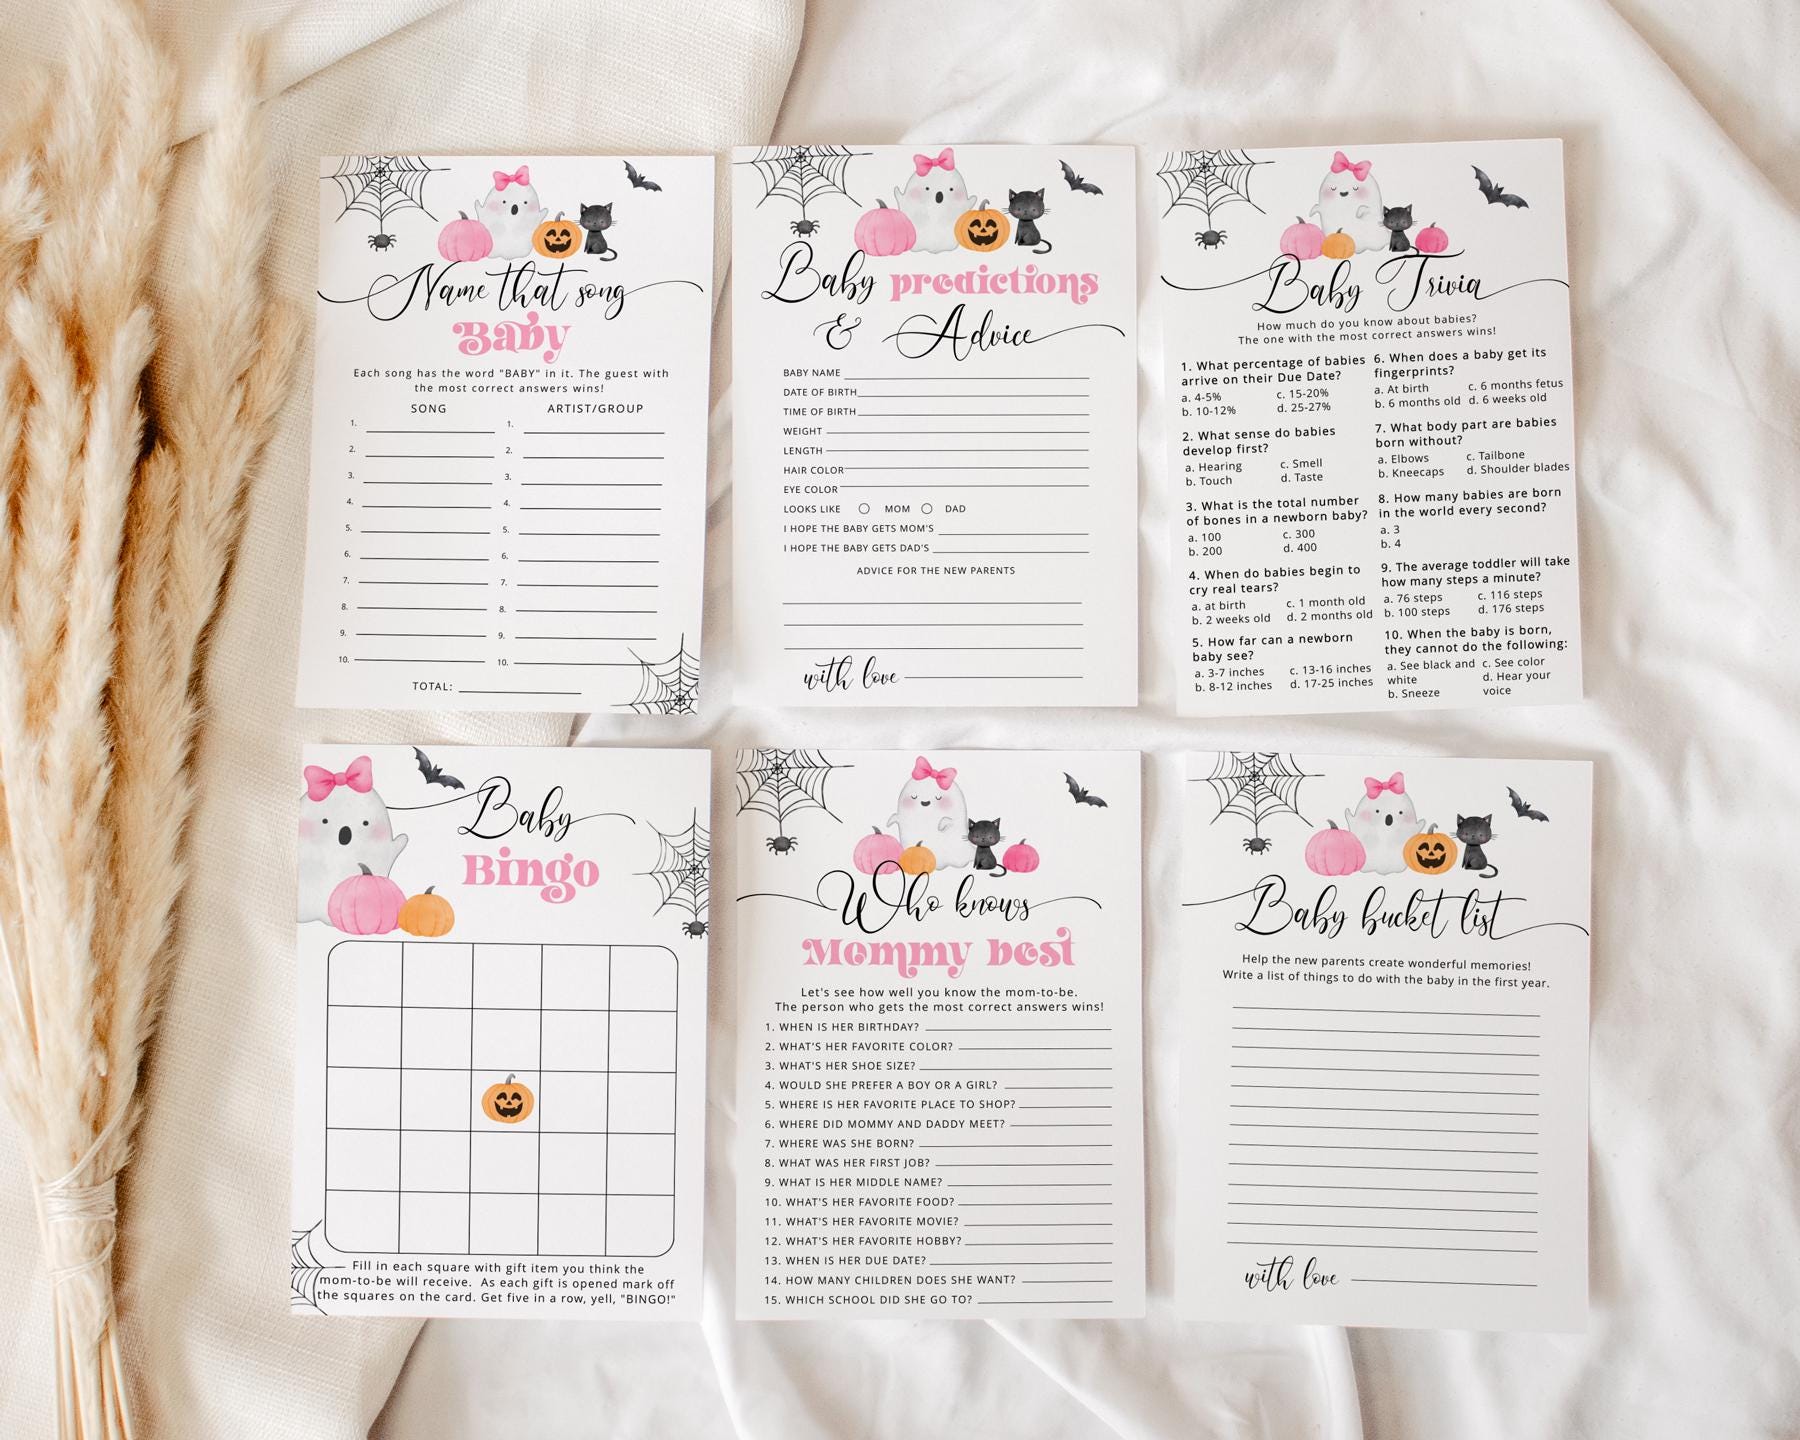 Name that song
Baby
Each song has the word "BABY" in it. The guest with
the most correct answers wins!
SONG ARTIST/GROUP
1. 1.
2. 2.
3. 3.
4. 4.
5. 5.
6. 6.
7. 7.
8. 8.
9. 9.
10. 10.
TOTAL:
Baby predictions
& Advice
BABY NAME
DATE OF BIRTH
TIME OF BIRTH
WEIGHT
LENGTH
HAIR COLOR
EYE COLOR
LOOKS LIKE MOM DAD
I HOPE THE BABY GETS MOM'S
I HOPE THE BABY GETS DAD'S
ADVICE FOR THE NEW PARENTS
with love
Baby Trivia
How much do you know about babies?
The one with the most correct answers wins!
1. What percentage of babies
arrive on their Due Date?
a. 4-5% c. 15-20%
b. 10-12% d. 25-27%
2. What sense do babies
develop first?
a. Hearing c. Smell
b. Touch d. Taste
3. What is the total number
of bones in a newborn baby?
a. 100 c. 300
b. 200 d. 400
4. When do babies begin to
cry real tears?
a. at birth c. 1 month old
b. 2 weeks old d. 2 months old
5. How far can a newborn
baby see?
a. 3-7 inches c. 13-16 inches
b. 8-12 inches d. 17-25 inches
6. When does a baby get its
fingerprints?
a. At birth c. 6 months fetus
b. 6 months old d. 6 weeks old
7. What body part are babies
born without?
a. Elbows c. Tailbone
b. Kneecaps d. Shoulder blades
8. How many babies are born
in the world every second?
a. 3
b. 4
9. The average toddler will take
how many steps a minute?
a. 76 steps c. 116 steps
b. 100 steps d. 176 steps
10. When the baby is born,
they cannot do the following:
a. See black and c. See color
white d. Hear your
b. Sneeze voice
Baby
Bingo
Fill in each square with gift item you think the
mom-to-be will receive. As each gift is opened mark off
the squares on the card. Get five in a row, yell, "BINGO!"
Who knows
Mommy best
Let's see how well you know the mom-to-be.
The person who gets the most correct answers wins!
1. WHEN IS HER BIRTHDAY?
2. WHAT'S HER FAVORITE COLOR?
3. WHAT'S HER SHOE SIZE?
4. WOULD SHE PREFER A BOY OR A GIRL?
5. WHERE IS HER FAVORITE PLACE TO SHOP?
6. WHERE DID MOMMY AND DADDY MEET?
7. WHERE WAS SHE BORN?
8. WHAT WAS HER FIRST JOB?
9. WHAT IS HER MIDDLE NAME?
10. WHAT'S HER FAVORITE FOOD?
11. WHAT'S HER FAVORITE MOVIE?
12. WHAT'S HER FAVORITE HOBBY?
13. WHEN IS HER DUE DATE?
14. HOW MANY CHILDREN DOES SHE WANT?
15. WHICH SCHOOL DID SHE GO TO?
Baby bucket list
Help the new parents create wonderful memories!
Write a list of things to do with the baby in the first year.
with love